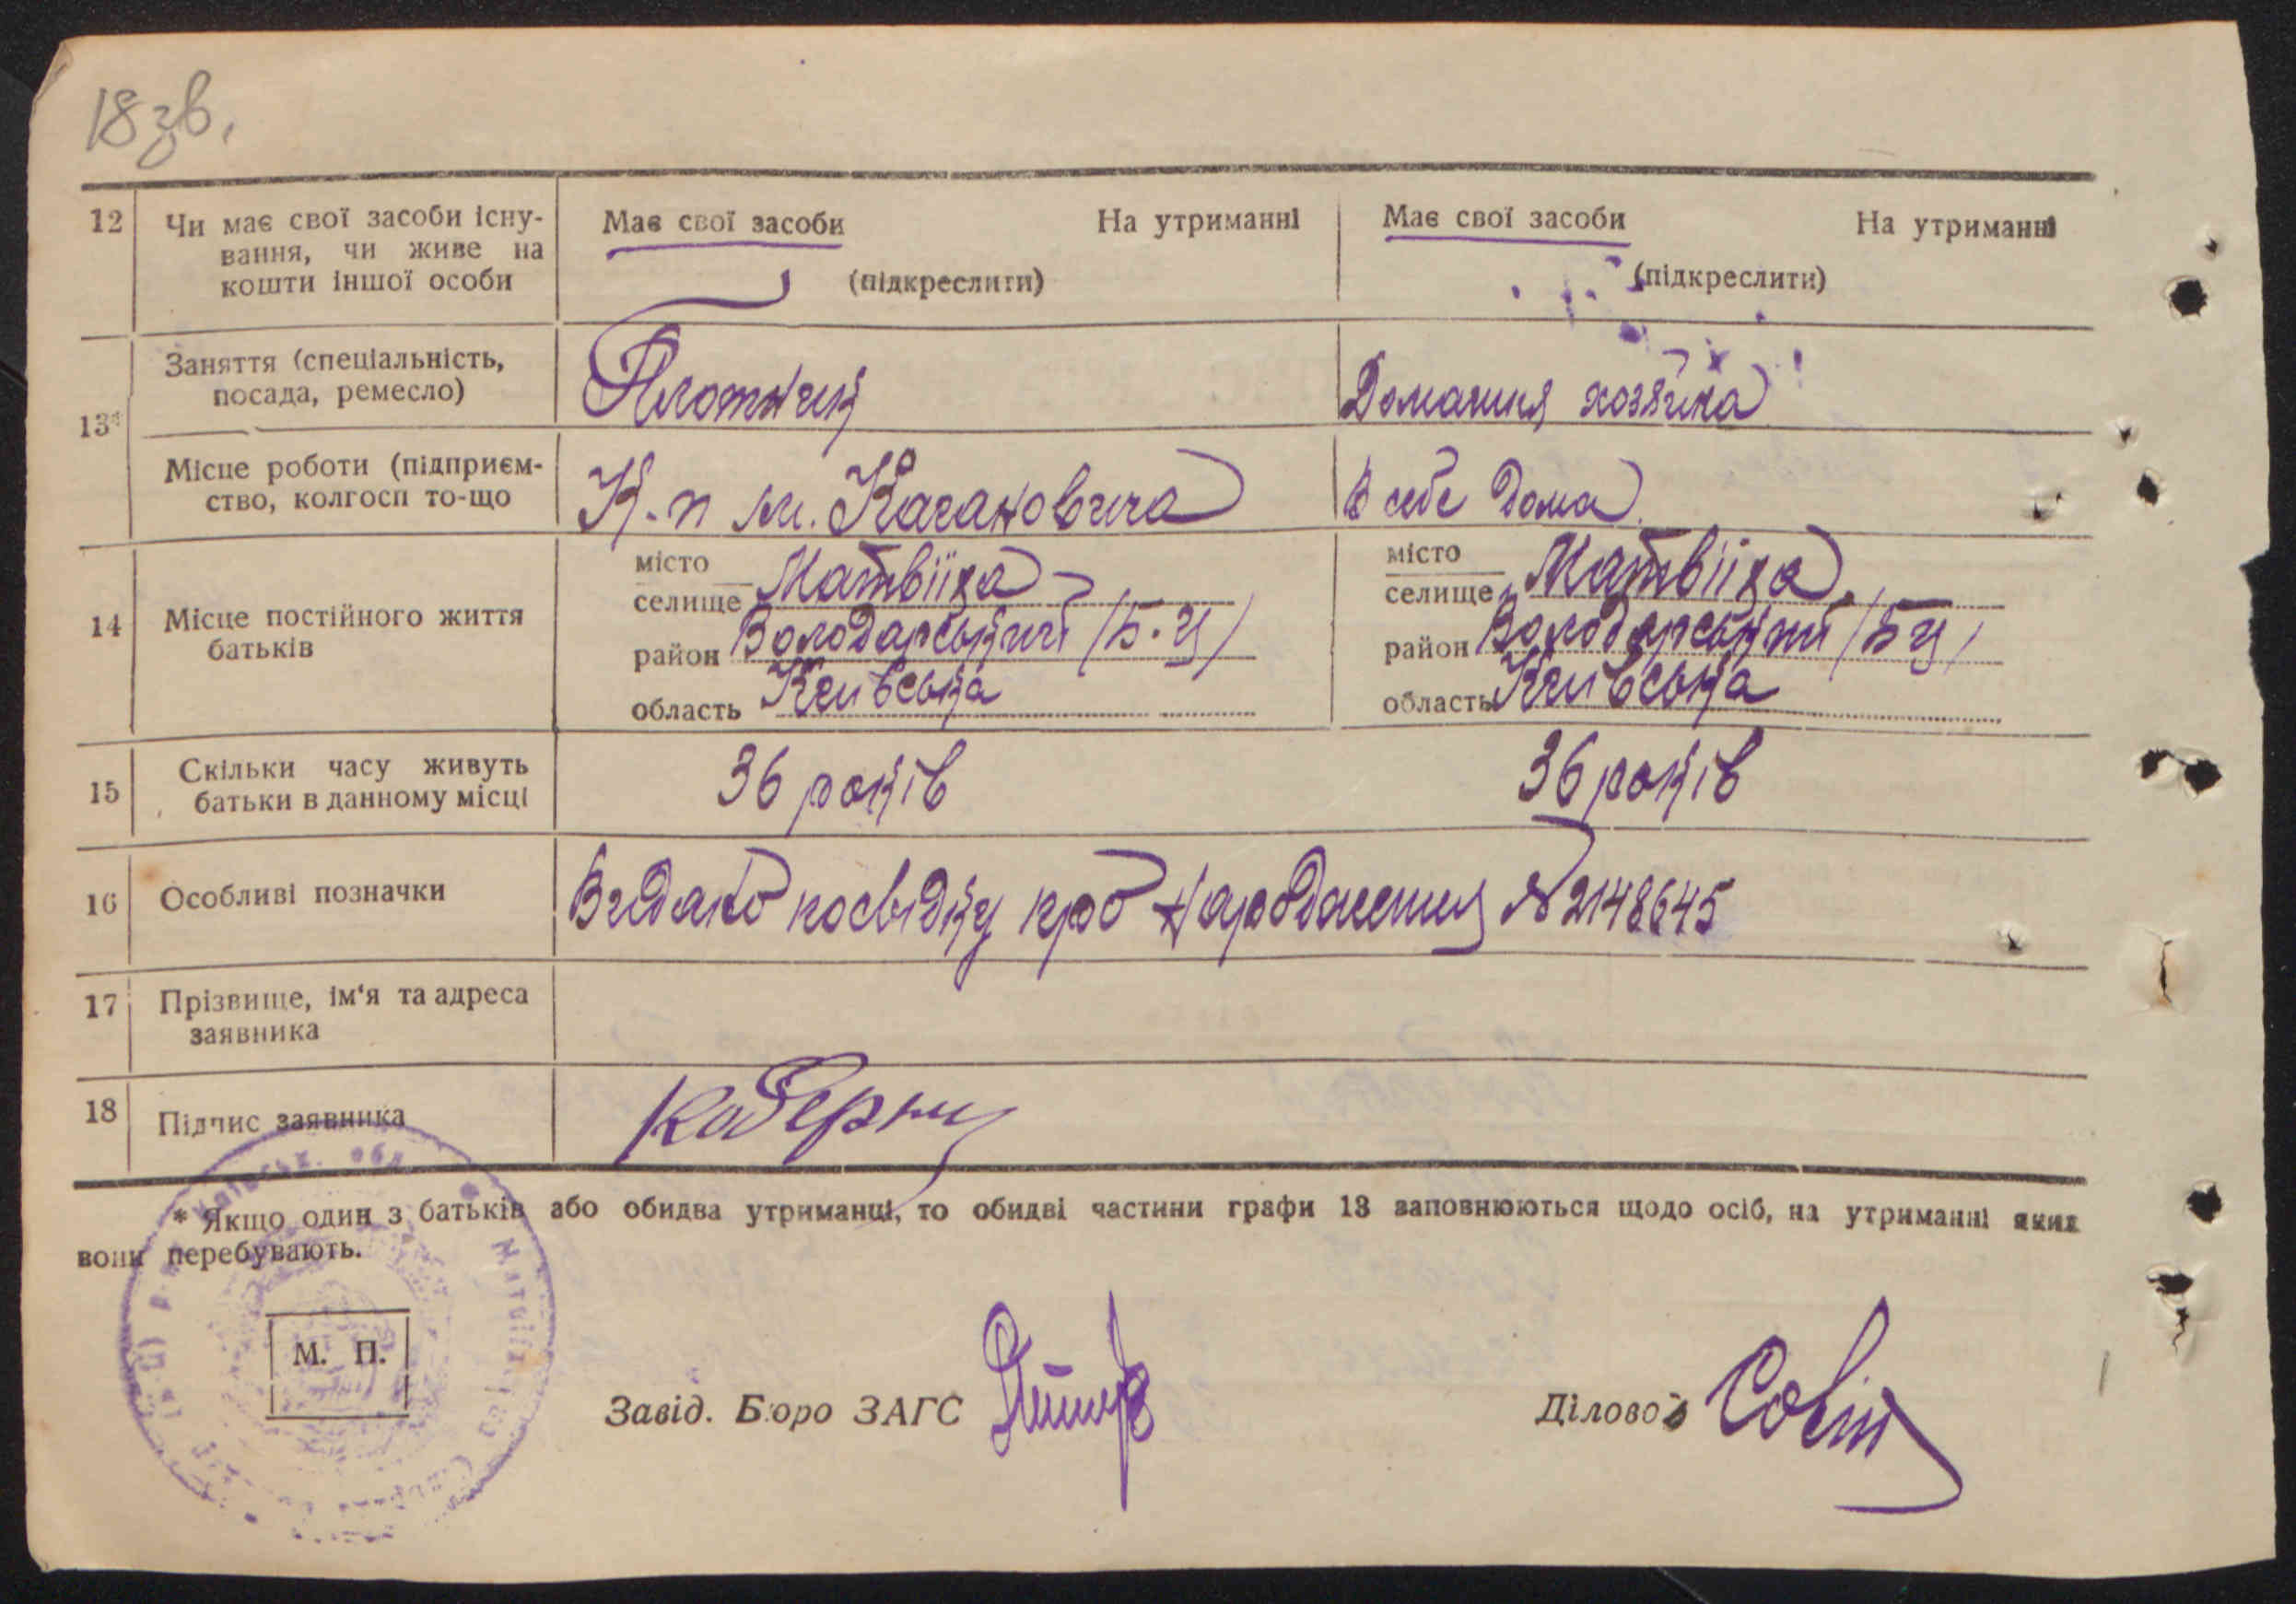 18 зв.
12 Чи має свої засоби існу-
вання, чи живе на
кошти іншої особи
Має свої засоби На утриманні
(підкреслити)
Має свої засоби На утриманні
(підкреслити)
13*
Заняття (спеціальність,
посада, ремесло)
Плотник
Домашня хозяйка
Місце роботи (підприєм-
ство, колгосп то-що
К-п ім. Кагановича
В себе дома
14 Місце постійного життя
батьків
місто
селище Матвіїха
район Володарський /Б.Ц/
область Київська
місто
селище Матвіїха
район Володарський /БЦ/
область Київська
15 Скільки часу живуть
батьки в данному місці
36 років
36 років
16 Особливі позначки
Видано посвідку про народження №2148645
17 Прізвище, ім'я та адреса
заявника
18 Підпис заявника
* Якщо один з батьків або обидва утриманці, то обидві частини графи 13 заповнюються щодо осіб, на утриманні яких
вони перебувають.
М. П.
Завід. Бюро ЗАГС
Діловод